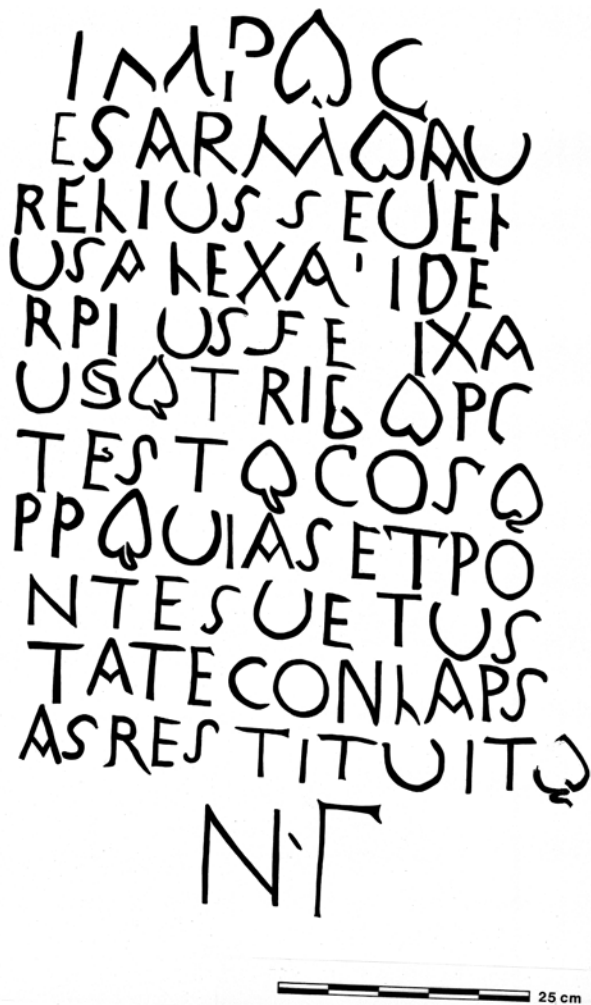 IMP❧C
ESAR M❧AU
RELIUS SEUER
USALEXA'IDE
RPI USFE IXA
US❧TRIB❧PC
TEST❧COS❧
PP❧UIASETPO
NTESUETUS
TATECONLAPS
ASRESTITUIT❧
N·Γ
25 cm